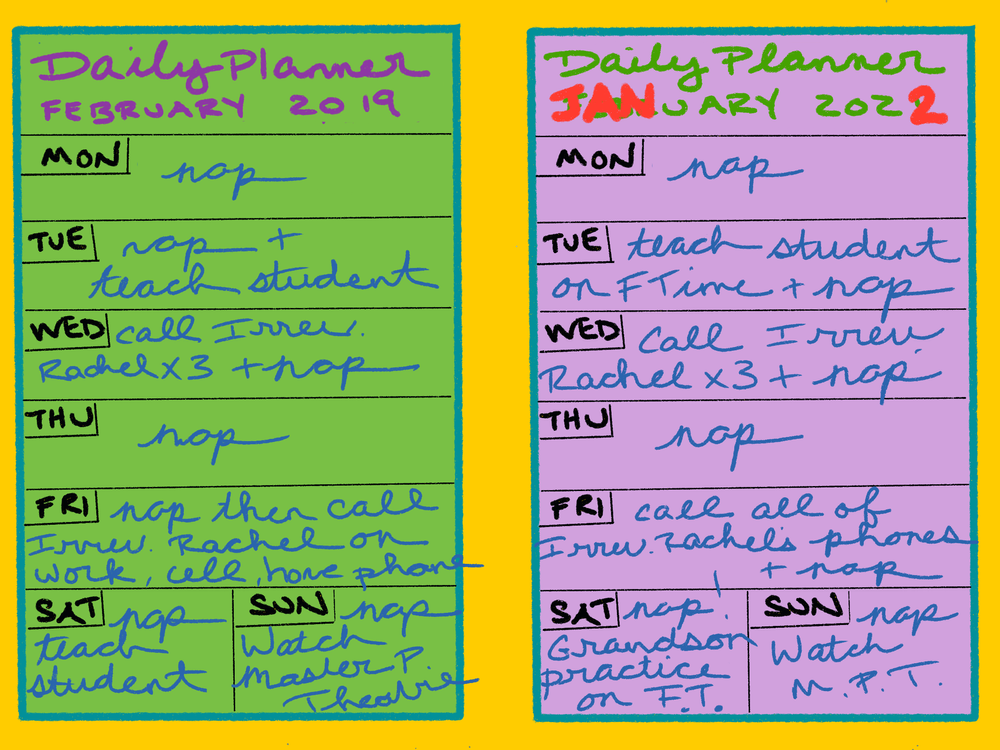 Daily Planner
FEBRUARY 2019
MON nap
TUE nap +
teach student
WED call Irrev.
Rachel x 3 + nap
THU nap
FRI nap then call
Irrev. Rachel on
work, cell, home phone
SAT nap
teach
student
SUN nap
Watch
Master P.
Theatre
Daily Planner
JANUARY 2022
MON nap
TUE teach student
on FTime + nap
WED Call Irrev.
Rachel x3 + nap
THU nap
FRI call all of
Irrev. Rachel's phones
+ nap
SAT nap!
Grandson
practice
on F.T.
SUN nap
Watch
M.P.T.